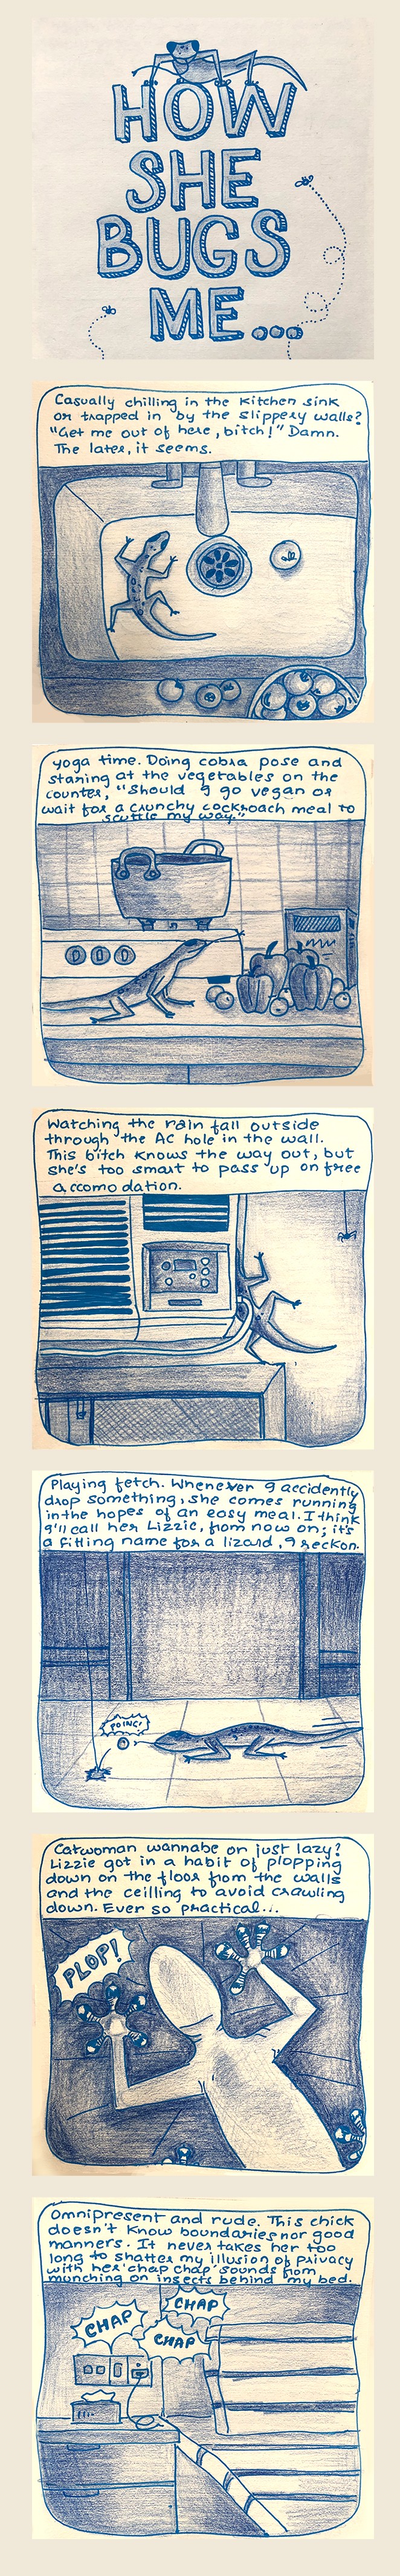 HOW
SHE
BUGS
ME...
Casually chilling in the kitchen sink
or trapped in by the slippery walls?
"Get me out of here, bitch!" Damn.
The later, it seems.
yoga time. Doing cobra pose and
staring at the vegetables on the
counter, "Should I go vegan or
wait for a crunchy cockroach meal to
scuttle my way."
Watching the rain fall outside
through the AC hole in the wall.
This bitch knows the way out, but
she's too smart to pass up on free
accomodation.
Playing fetch. Whenever I accidently
drop something, she comes running
in the hopes of an easy meal. I think
I'll call her Lizzie, from now on; it's
a fitting name for a lizard, I reckon.
POING!
Catwoman wannabe or just lazy?
Lizzie got in a habit of plopping
down on the floor from the walls
and the ceilling to avoid crawling
down. Ever so practical...
PLOP!
Omnipresent and rude. This chick
doesn't know boundaries nor good
manners. It never takes her too
long to shatter my illusion of privacy
with her 'chap chap' sounds from
munching on insects behind my bed.
CHAP
CHAP
CHAP